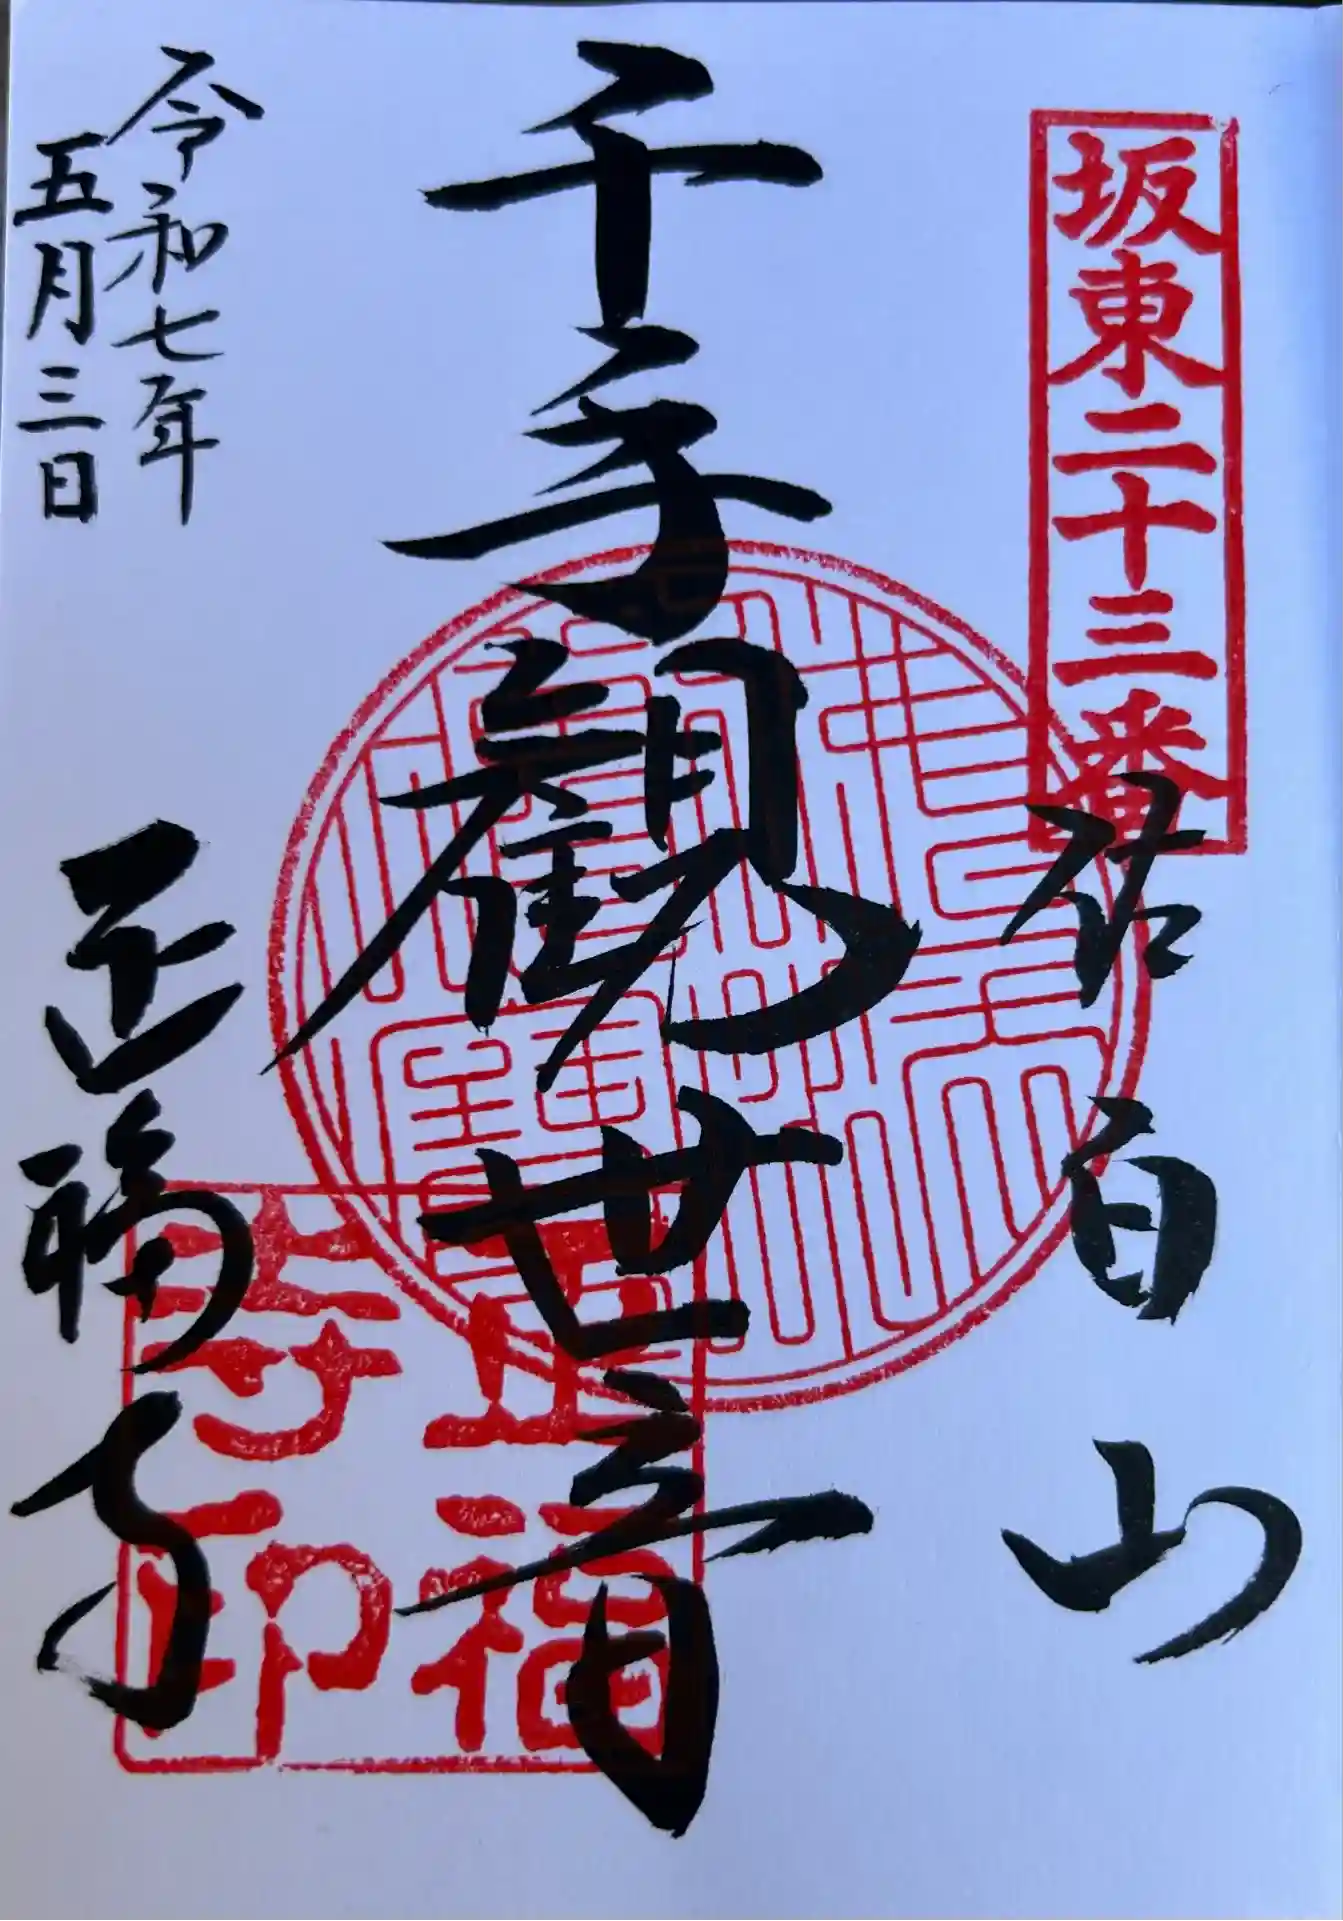 坂東二十三番
佐白山
千手観世音
令和七年
五月三日
正福寺
正福
寺印